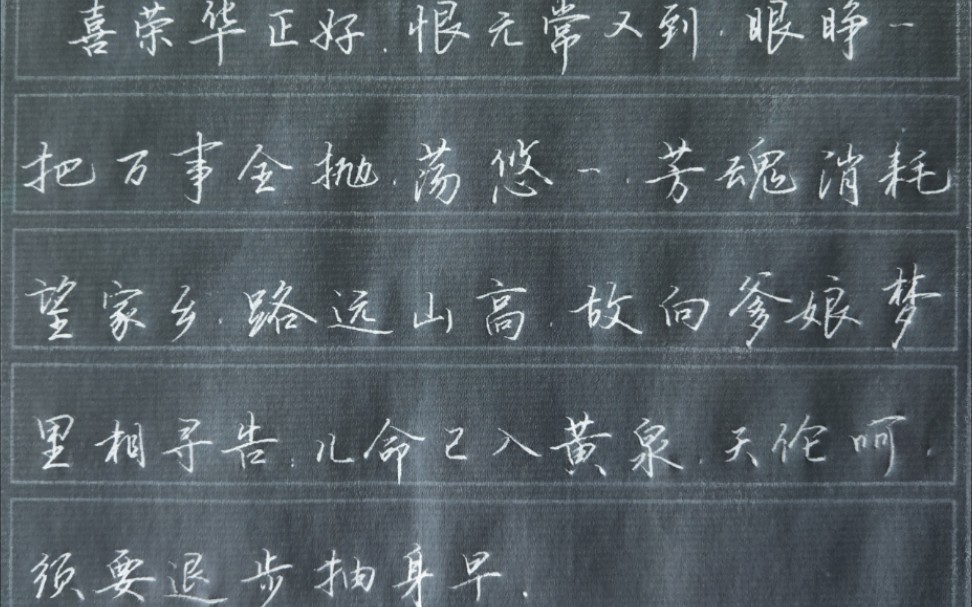 喜荣华正好,恨无常又到,眼睁一
把万事全抛,荡悠一,芳魂消耗
望家乡,路远山高,故向爹娘梦
里相寻告,儿命已入黄泉,天伦呵,
须要退步抽身早.